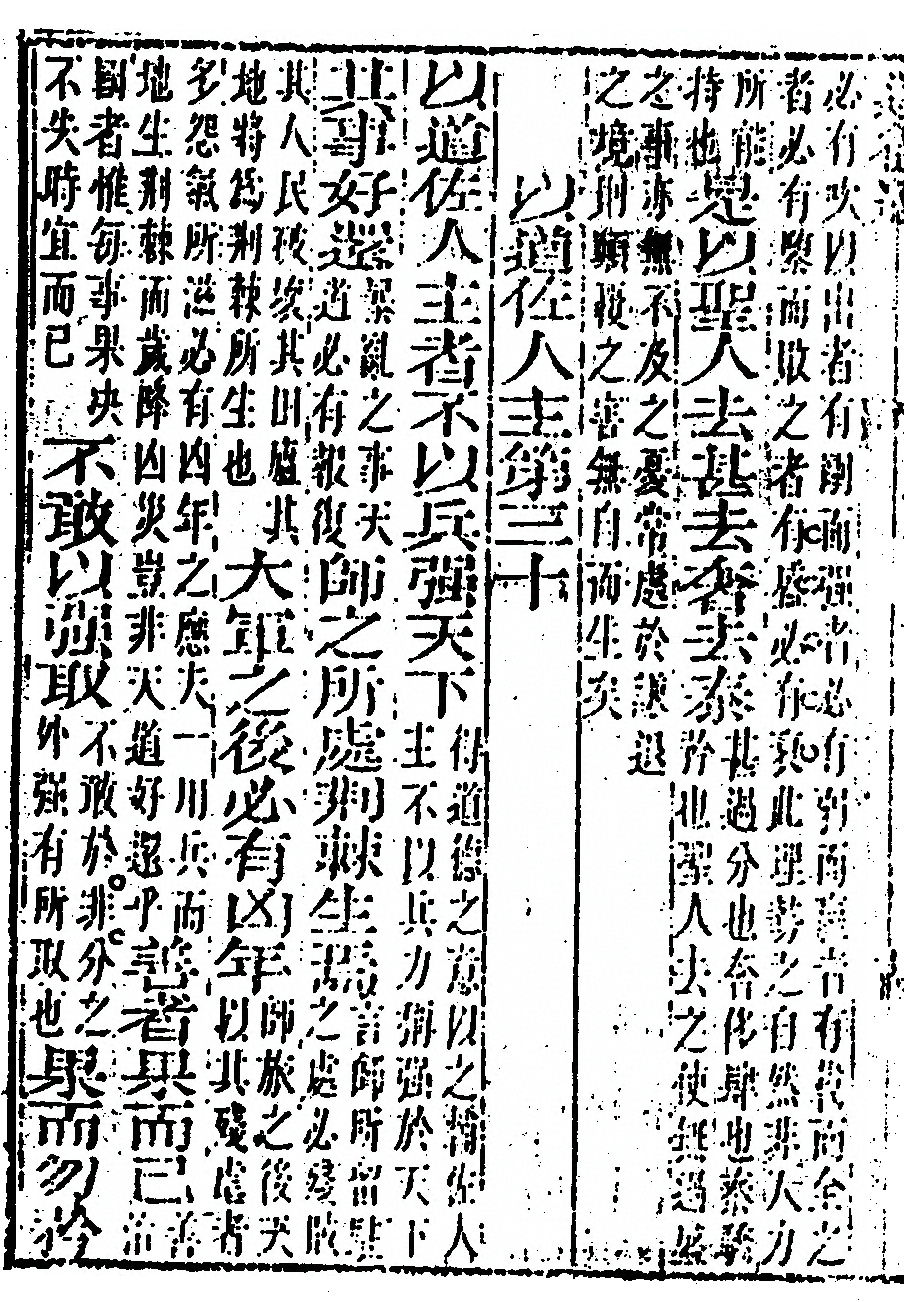 必有吹以出者有剛而强者必有弱而羸者有載而全之
者必有隳而敗之者有 必有衰此理勢之自然非人力
所能持也是以聖人去甚去奢去泰甚過分也奢侈肆也泰驕矜也聖人去之使無過盛
之事亦無不及之憂常處於謙退
之境則顛覆之害無自而生矣
以道佐人主第三十
以道佐人主者不以兵强天下得道德之意以之輔佐人主不以兵力獨强於天下
其事好還暴亂之事天道必有報復師之所處荆棘生焉言師所留駐之處必殘敗
其人民破壞其田廬其地將爲荆棘所生也大軍之後必有凶年師旅之後天以其殘虐者
多怨氣所滋必有凶年之應夫一用兵而地生荆棘而歲降凶災豈非天道好還乎善者果而已善治
國者惟每事果決不失時宜而已不敢以强取不敢於非分之外强有所取也果而勿矜